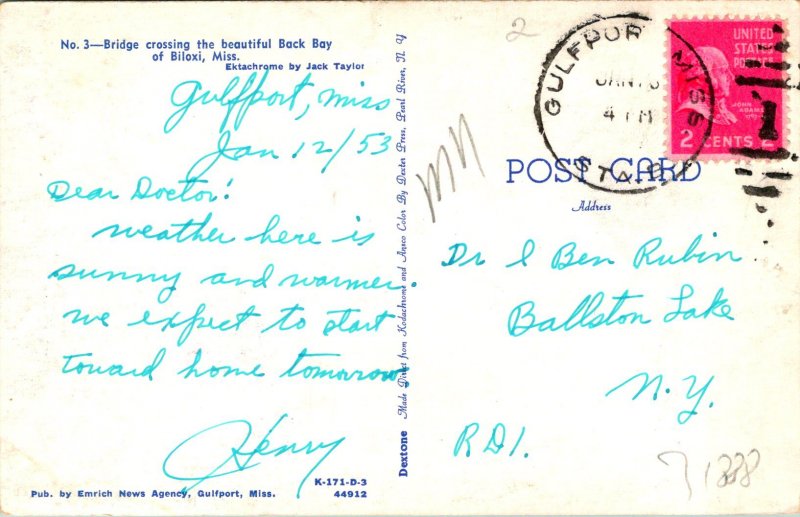 No. 3—Bridge crossing the beautiful Back Bay
of Biloxi, Miss.
Ektachrome by Jack Taylor
Gulfport, Miss
Jan 12/53
Dear Doctor!
Weather here is
sunny and warmer.
We expect to start
toward home tomorrow
Henry
K-171-D-3
44912
Pub. by Emrich News Agency, Gulfport, Miss.
Dextone
Made Direct from Kodachrome and Ansco Color By Dexter Press, Pearl River, N. Y
2
GULFPORT MISS
JAN 13
4 PM
STA.
UNITED
STATES
POSTAGE
JOHN
ADAMS
2 CENTS 2
1
POST CARD
Address
Dr I Ben Rubin
Ballston Lake
N.Y.
RD1.